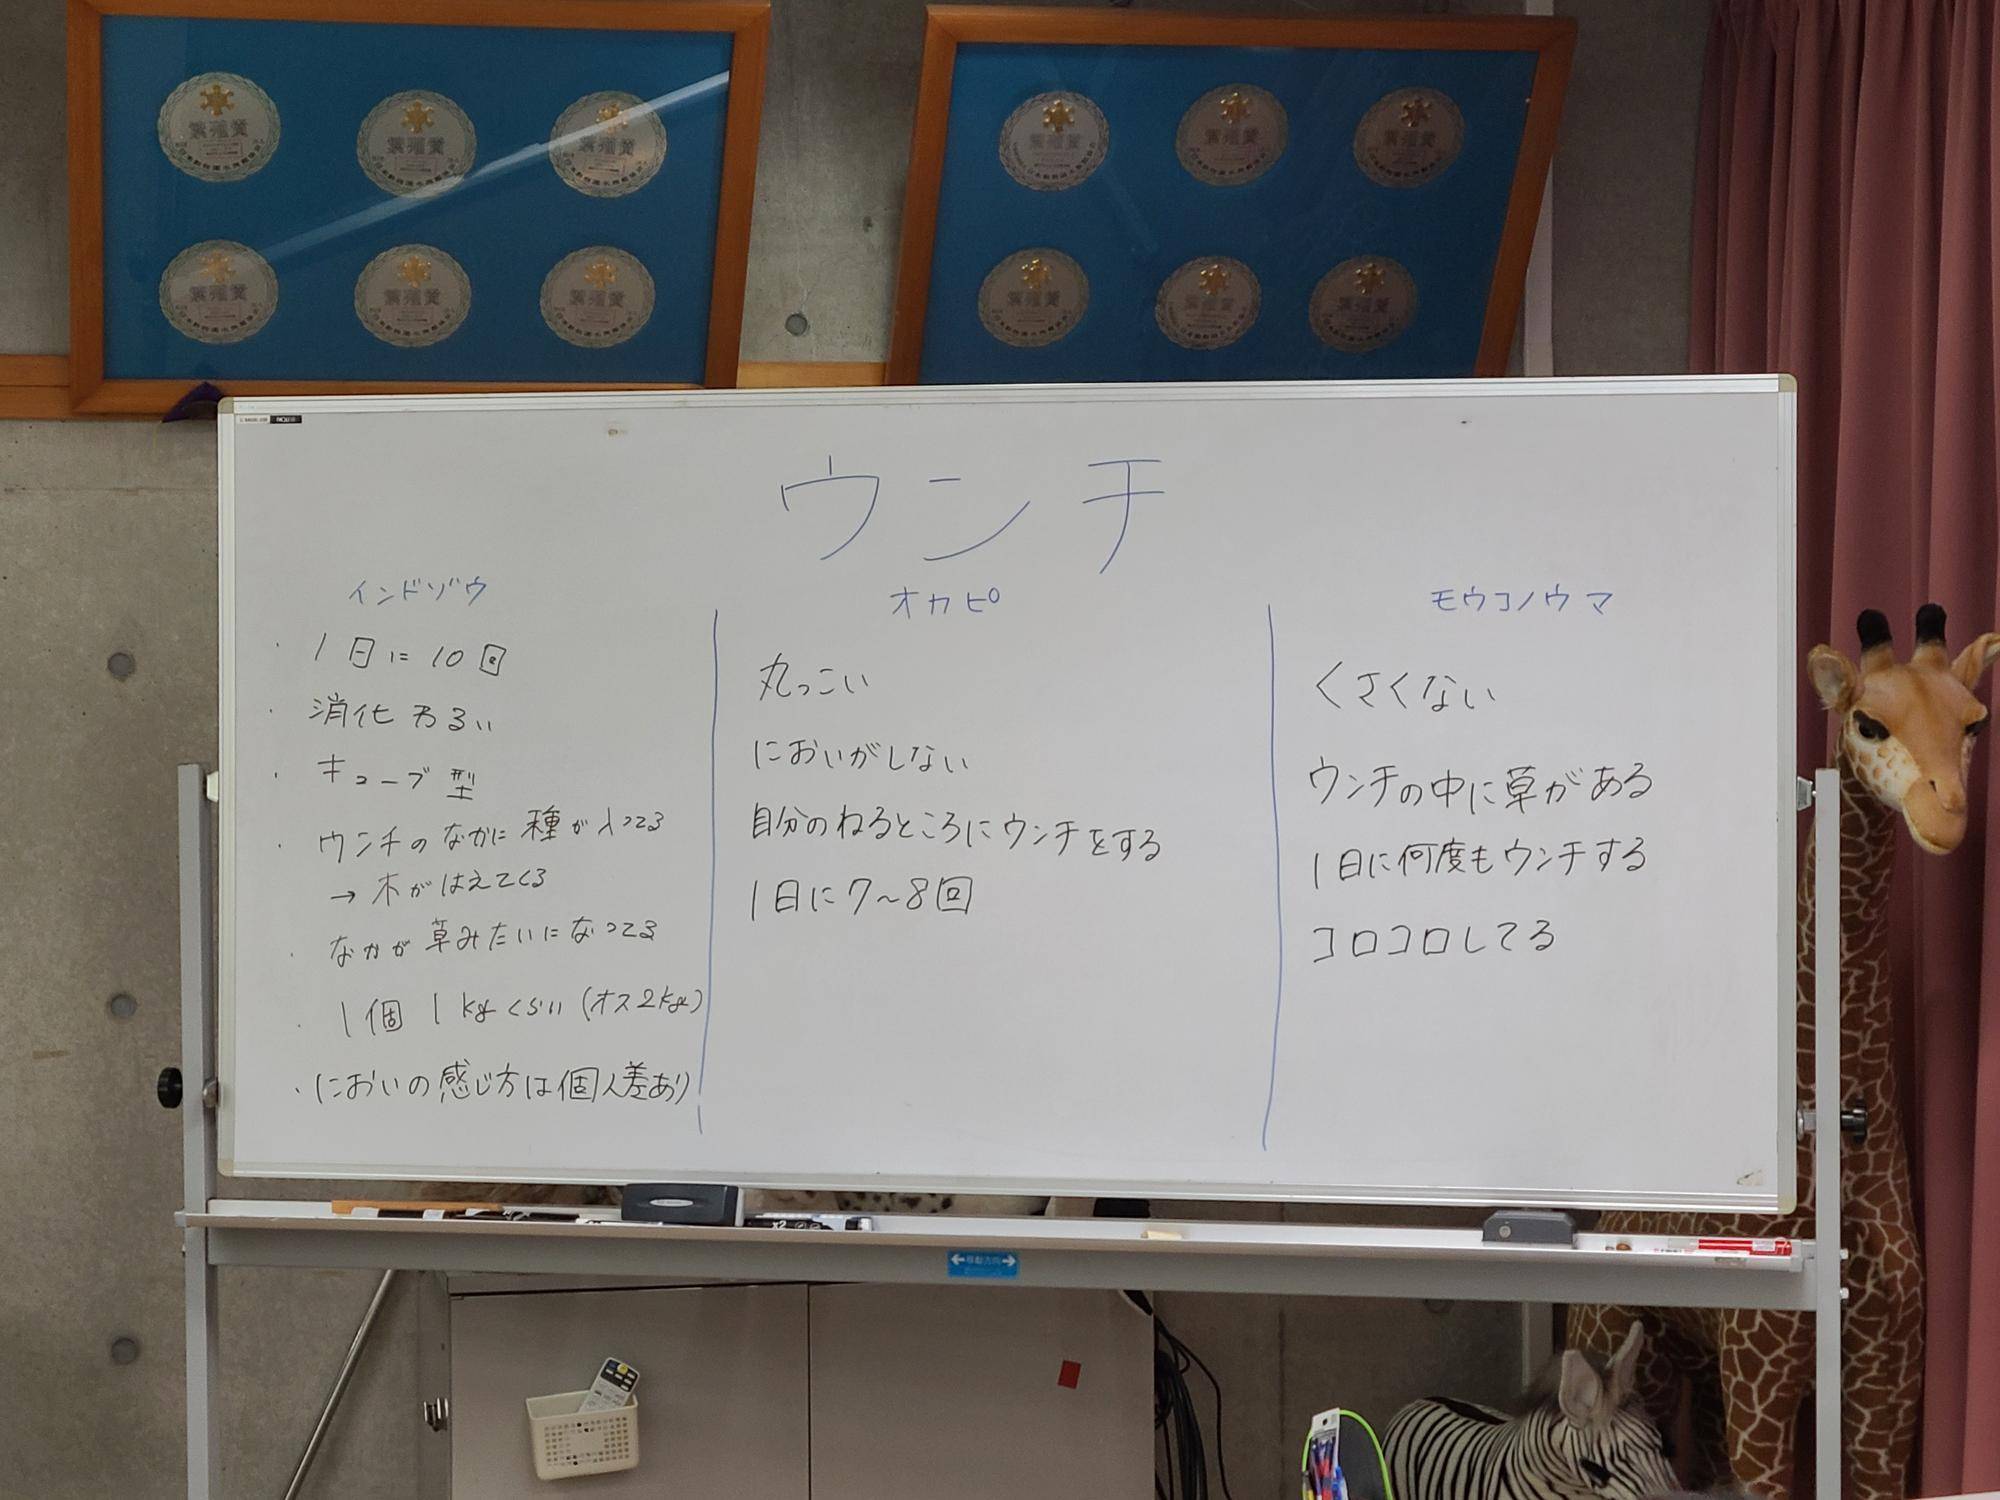 繁殖賞
繁殖賞
繁殖賞
繁殖賞
繁殖賞
繁殖賞
繁殖賞
繁殖賞
繁殖賞
繁殖賞
繁殖賞
繁殖賞
ウンチ
インドゾウ
・1日に10回
・消化わるい
・キューブ型
・ウンチのなかに種が入ってる
→木がはえてくる
・なかが草みたいになってる
・1個 1kgくらい(オス2kg)
・においの感じ方は個人差あり
オカピ
丸っこい
においがしない
自分のねるところにウンチをする
1日に7～8回
モウコノウマ
くさくない
ウンチの中に草がある
1日に何度もウンチする
コロコロしてる
移動方向